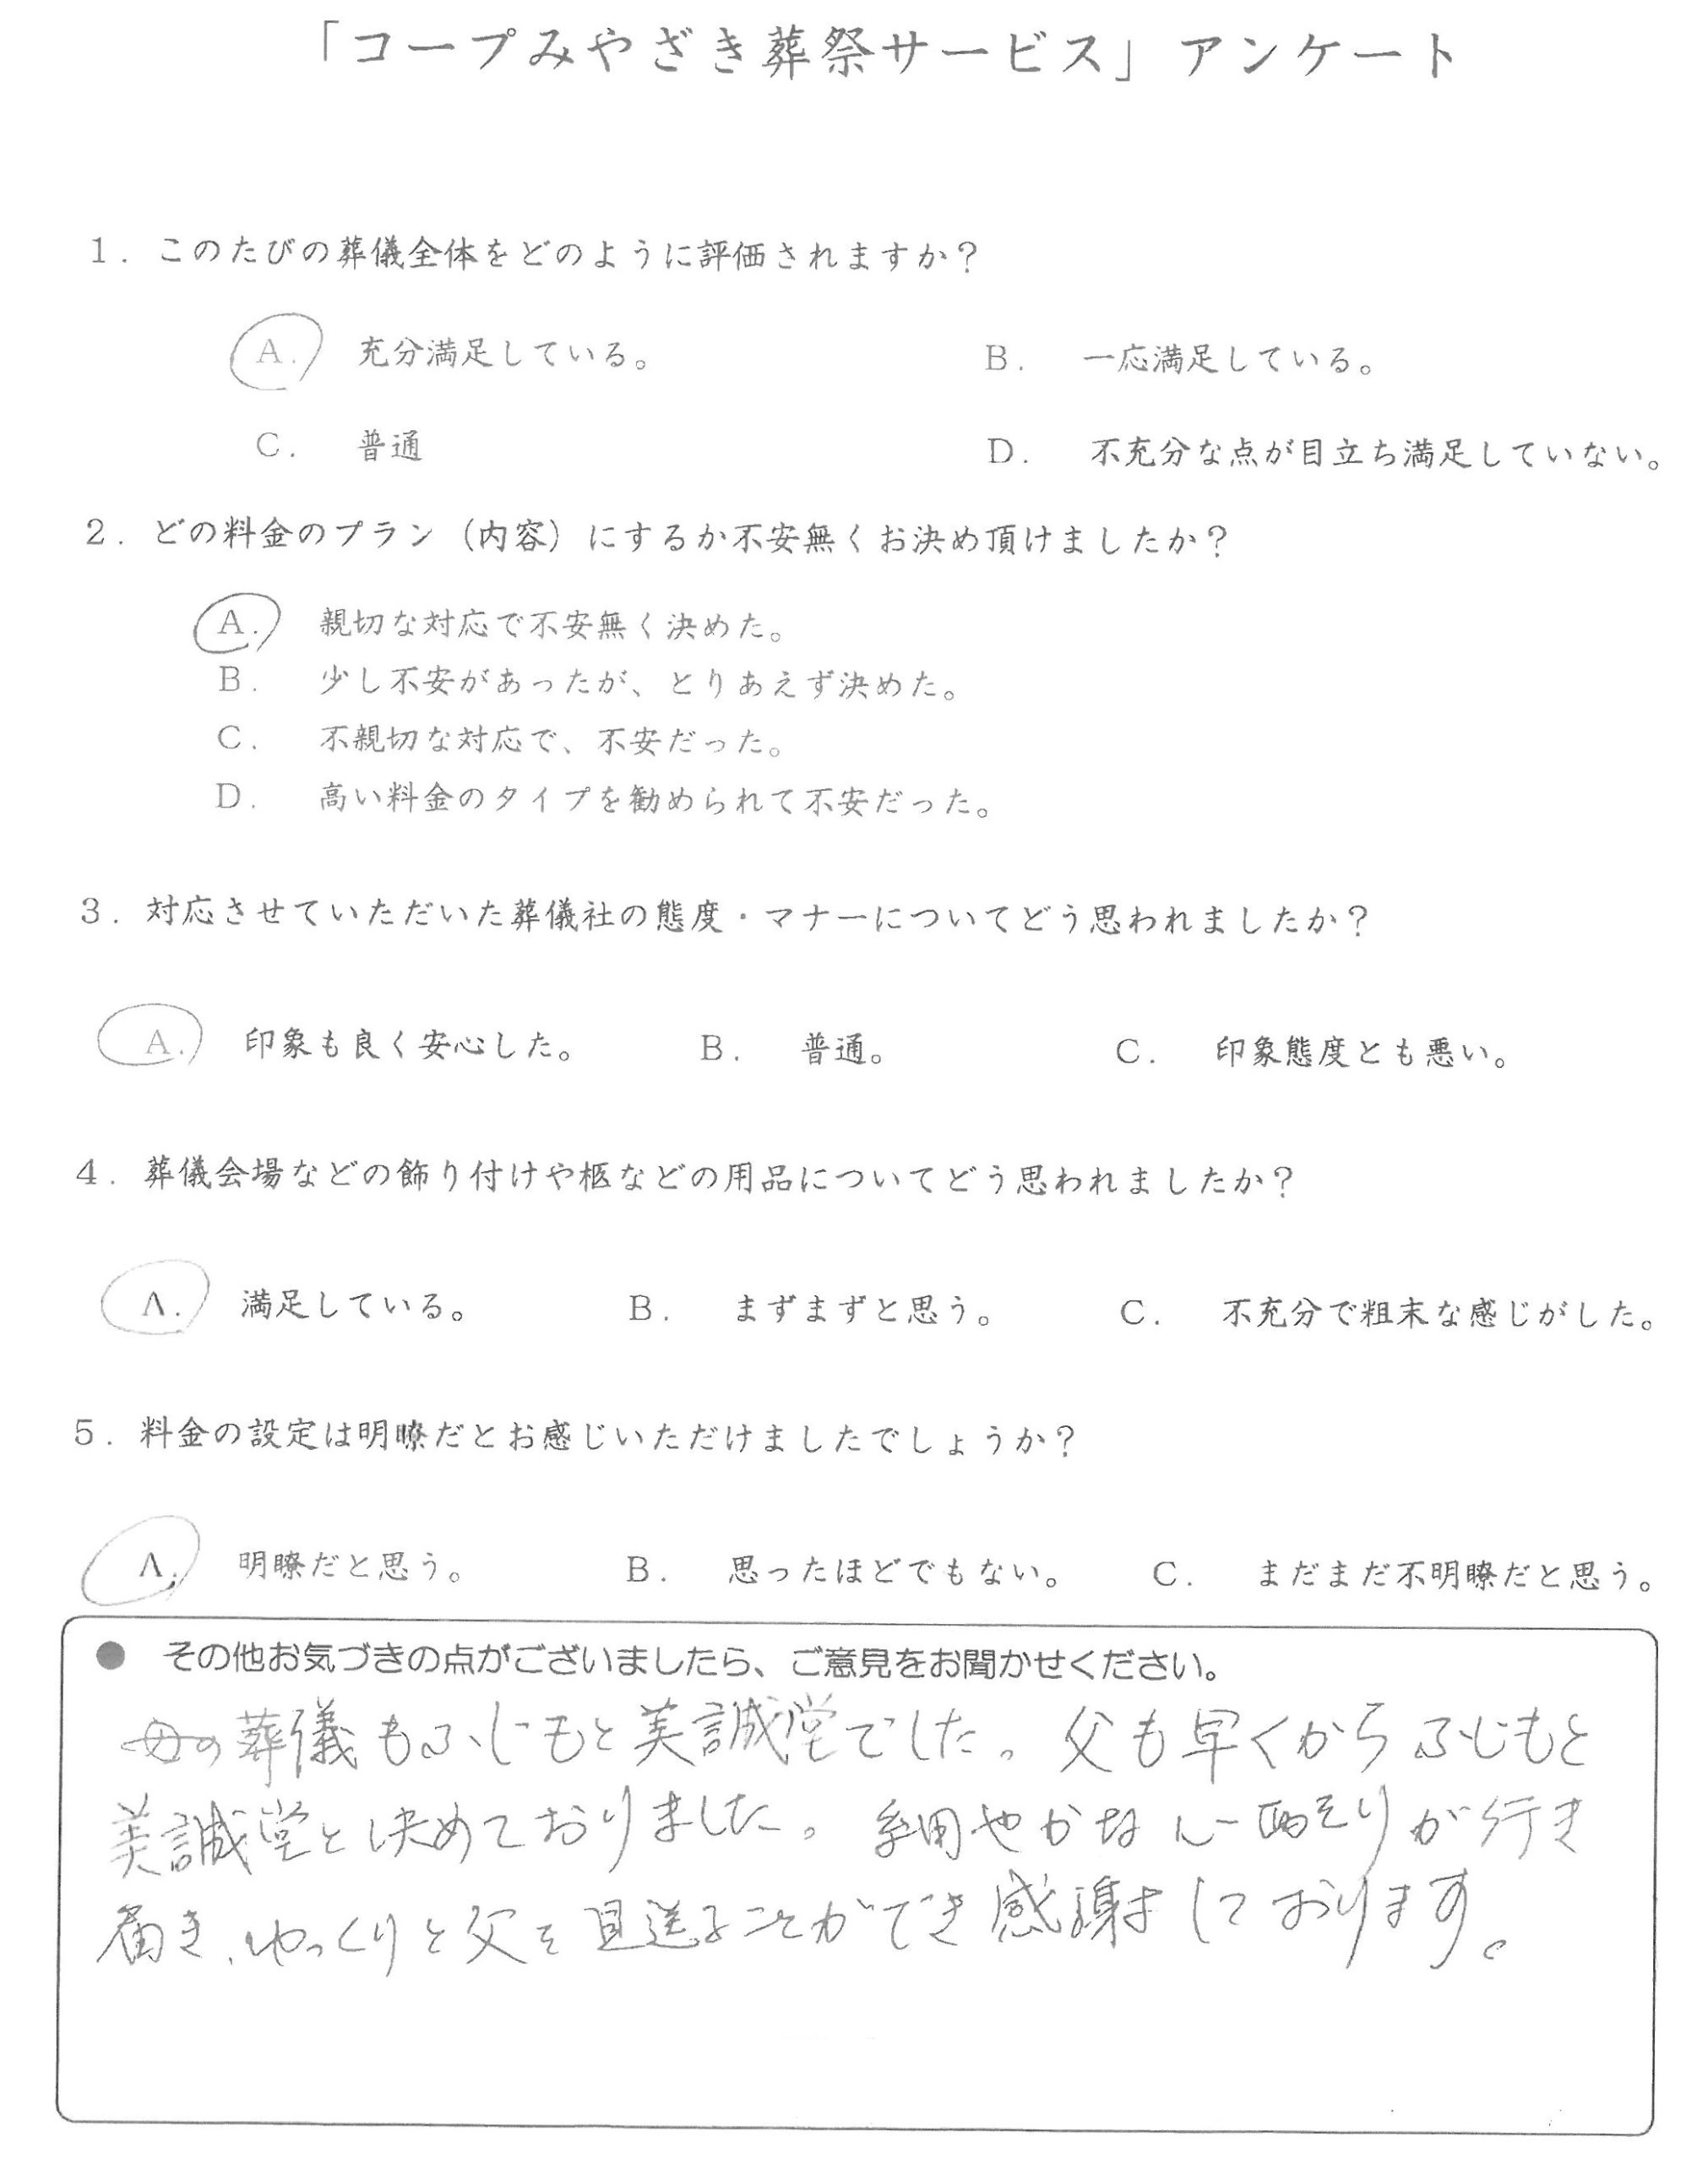 「コープみやざき葬祭サービス」アンケート
1. このたびの葬儀全体をどのように評価されますか?
A. 充分満足している。 B. 一応満足している。
C. 普通 D. 不充分な点が目立ち満足していない。
2. どの料金のプラン（内容）にするか不安無くお決め頂けましたか?
A. 親切な対応で不安無く決めた。
B. 少し不安があったが、とりあえず決めた。
C. 不親切な対応で、不安だった。
D. 高い料金のタイプを勧められて不安だった。
3. 対応させていただいた葬儀社の態度・マナーについてどう思われましたか?
A. 印象も良く安心した。 B. 普通。 C. 印象態度とも悪い。
4. 葬儀会場などの飾り付けや柩などの用品についてどう思われましたか?
A. 満足している。 B. まずまずと思う。 C. 不充分で粗末な感じがした。
5. 料金の設定は明瞭だとお感じいただけましたでしょうか?
A. 明瞭だと思う。 B. 思ったほどでもない。 C. まだまだ不明瞭だと思う。
● その他お気づきの点がございましたら、ご意見をお聞かせください。
母の葬儀もふじもと美誠堂でした。父も早くからふじもと
美誠堂と決めておりました。細やかな心配りが行き
届き、ゆっくりと父を見送ることができ感謝しております。